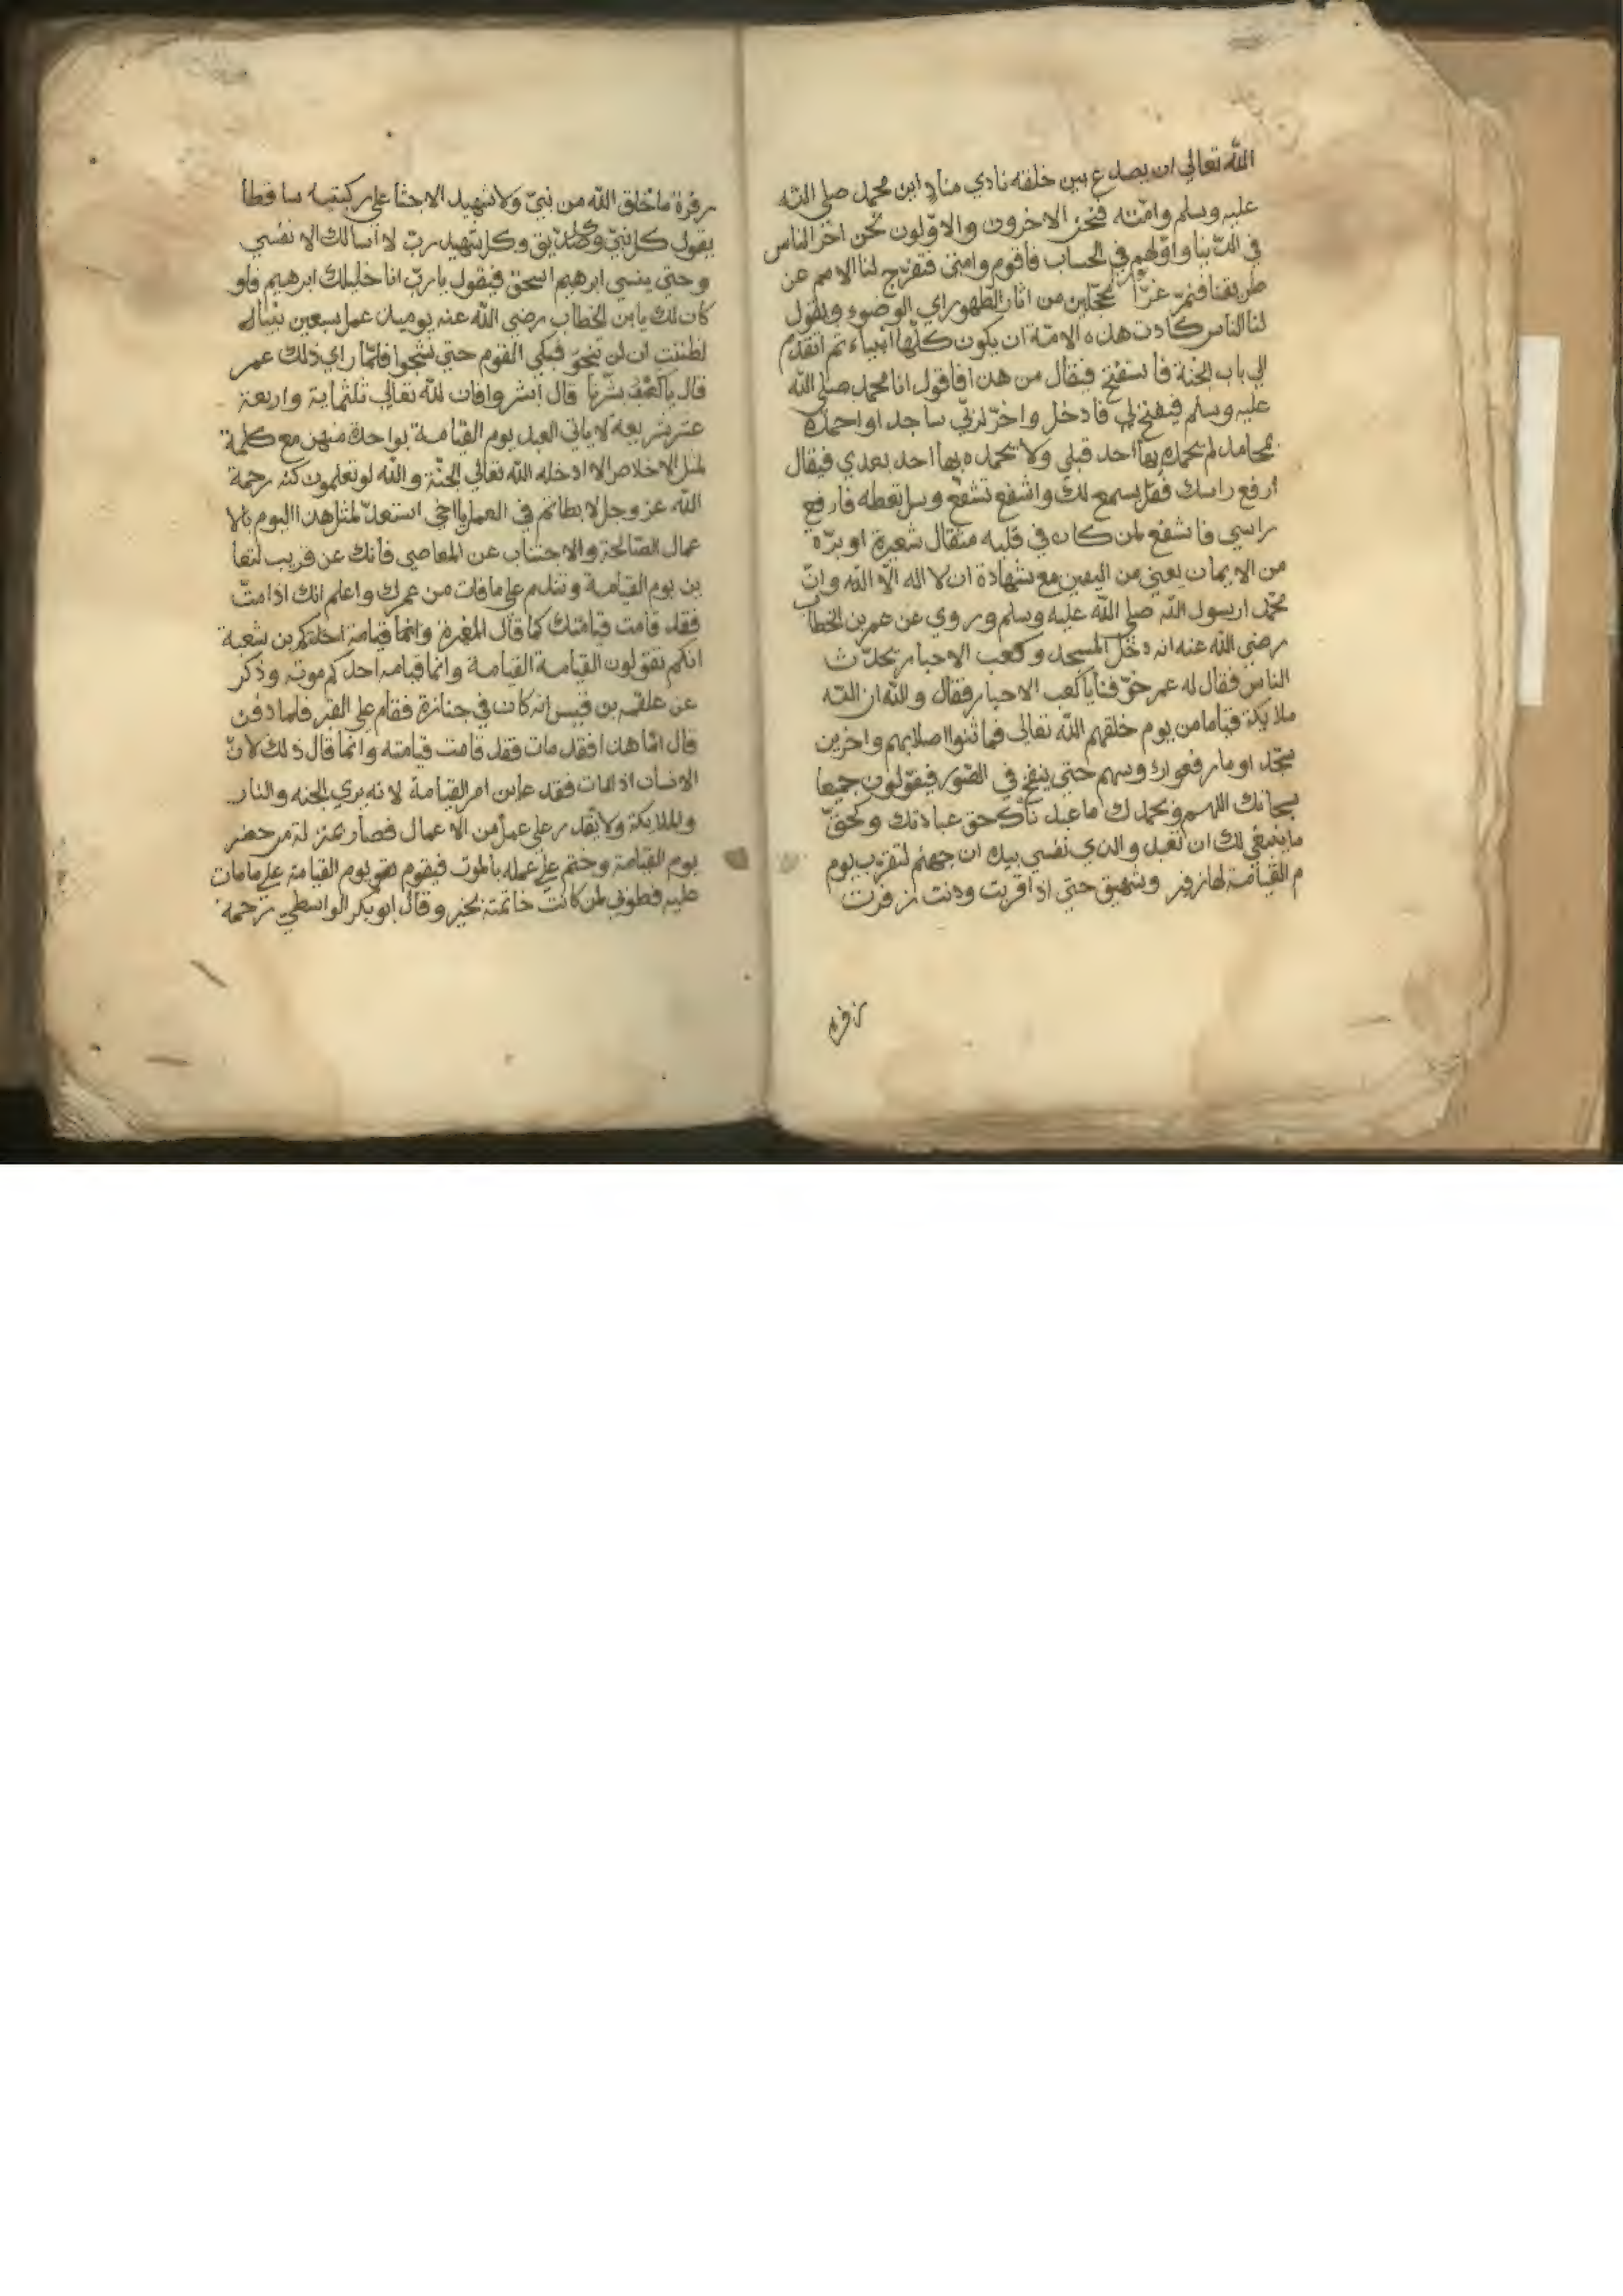 الله تعالي ان يصدع بين خلقه نادي مناد اين محمد صلي الله
عليه وسلم وامته فنحن الاخرون والاوّلون نحن اخر الناس
في الدّنيا واوّلهم في الحساب فأقوم وامتي فتفرج لنا الامم عن
طريقنا فنمرّ غرّا محجّلين من اثار الطّهور اي الوضوء ويقول
لنا الناس كادت هذه الامّة ان يكون كلّها انبياء ثم اتقدم
الي باب الجنّة فاستفتح فيقال من هذا فاقول انا محمد صلي الله
عليه وسلم فيفتح لي فادخل واخرّ لربّي ساجدا واحمده
بمحامد لم يحمده بها احد قبلي ولا يحمده بها احد بعدي فيقال
ارفع راسك فقل يسمع لك واشفع تشفّع وسل تعطه فارفع
راسي فاشفع لمن كان في قلبه مثقال شعيرة او برّة
من الايمان يعني من اليقين مع شهادة ان لا اله الّا الله وانّ
محمّدا رسول الله صلي الله عليه وسلم وروي عن عمر بن الخطاب
رضي الله عنه انه دخل المسجد وكعب الاحبار يحدّث
الناس فقال له عمر خوّفنا يا كعب الاحبار فقال والله ان لله
ملايكة قياما من يوم خلقهم الله تعالى فما ثنوا اصلابهم واخرين
سجّدا وما رفعوا رؤسهم حتي ينفخ في الصّور فيقولون جميعا
سبحانك اللهم وبحمدك ما عبدناك حق عبادتك وكحقّ
ما ينبغي لك ان تعبد والذي نفسي بيده ان جهنم لتقرب يوم
م القيامة لها زفير وشهيق حتي اذا قربت ودنت زفرت
زفرة
زفرة ما خلق الله من نبيّ ولا شهيد الا جثا علي ركبتيه ساقطا
يقول كل نبيّ وكل صدّيق وكل شهيد ربّ لا اسالك الا نفسي
وحتي ينسي ابرهيم اسحق فيقول يا ربّ انا خليلك ابرهيم فلو
كان لك يا ابن الخطاب رضي الله عنه يوميذ عمل سبعين نبيا
لظننت ان لن تنجو فبكي القوم حتي نشجوا فلمّا راي ذلك عمر
قال يا كعب بشّرنا قال أبشروا فان لله تعالي ثلثماية واربعة
عشر شريعة لا ياتي العبد يوم القيامة بواحدة منهن مع كلمة
الاخلاص الا ادخله الله تعالي الجنّة والله لو تعلمون كنه رحمة
الله عز وجل لابطاتم في العمل يا اخي استعدّ لمثل هذا اليوم بالا
عمال الصّالحة والاجتناب عن المعاصي فأنك عن قريب لتعا
ين يوم القيامة وتندم علي ما فات من عمرك واعلم انك اذا متّ
فقد قامت قيامتك كما قال المغيرة وانما قيامة احدكم بن شعبة
انكم تقولون القيامة القيامة وانما قيامة احدكم موته وذكر
عن علقمه بن قيس انه كان في جنازة فقام علي القبر فلما دفن
قال امّا هذا فقد مات فقد قامت قيامته وانما قال ذلك لانّ
الانسان اذا مات فقد عاين امر القيامة لانه يري الجنه والنار
والملايكة ولا يقدر علي عمل من الاعمال فصار بمنزلة من حضر
يوم القيامة وختم علي عمله بالموت فيقوم يوم القيامة علي ما مات
عليه فطوبي لمن كانت خاتمته بخير وقال ابو بكر الواسطي رحمه